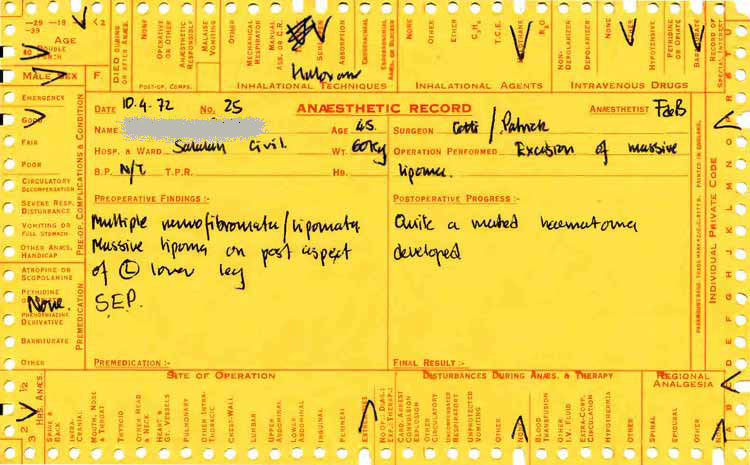 -29 -19 <2
-39
AGE
80 DOUBLE PUNCH
MALE SEX F.
DIED DURING OR AFTER ANÆS.
NONE
OPERATIVE OR OTHER
ANÆSTHETIC RESPONSIBLE
MALAISE VOMITING
OTHER
POST-OP. COMPS.
MECHANICAL RESPIRATOR
MANUAL ASS. OR C.R.
ABSORPTION
Halovam
INHALATIONAL TECHNIQUES
NONE
OTHER
ETHER
C3H6
T.C.E.
N2O
INHALATIONAL AGENTS
NON-DEPOLARIZER
DEPOLARIZER
NONE
OTHER
HYPOTENSIVE
PETHIDINE OR OPIATE
BARBITURATE
INTRAVENOUS DRUGS
RECORD OF SPECIAL INTEREST
DATE 10.4.72 NO. 25 ANÆSTHETIC RECORD ANÆSTHETIST FdeB
NAME AGE 45. SURGEON Cotti / Patrick
HOSP. & WARD Salalah Civil. WT. 60kg OPERATION PERFORMED Excision of massive
B.P. N/T T.P.R. HB. lipoma.
PREOPERATIVE FINDINGS :- POSTOPERATIVE PROGRESS :-
Multiple neurofibromata/lipomata Quite a marked haematoma
Massive lipoma on post aspect developed
of (L) lower leg
S.E.P.
PREMEDICATION :- FINAL RESULT :-
EMERGENCY
GOOD
FAIR
POOR
CIRCULATORY DECOMPENSATION
SEVERE RESP. DISTURBANCE
VOMITING OR FULL STOMACH
OTHER ANÆS. HANDICAP
PRE-OP. COMPLICATIONS & CONDITION
ATROPINE OR SCOPOLAMINE
PETHIDINE
None.
PHENOTHIAZINE DERIVATIVE
BARBITURATE
OTHER
PREMEDICATION
INDIVIDUAL PRIVATE CODE
PRINTED IN ENGLAND.
SITE OF OPERATION
DISTURBANCES DURING ANÆS. & THERAPY
REGIONAL ANALGESIA
3 2 1 1/2
HRS. ANÆS.
SPINE & BACK
INTRA-CRANIAL
MOUTH, NOSE & THROAT
THYROID
OTHER HEAD & NECK
HEART & GT. VESSELS
PULMONARY
OTHER INTRA-THORACIC
CHEST-WALL
LUMBAR
UPPER ABDOMINAL
LOWER ABDOMINAL
INGUINAL
PERINEAL
EXTREMITIES
NO. OF DAILY EXP. THERAPY
CARD. ARREST
CONVULSION
EXPLOSION
OTHER CIRCULATORY
UNCOMBINED RESPIRATORY
UNPROTECTED VOMITING
OTHER
NONE
BLOOD TRANSFUSION
OTHER I.V. FLUID
EXTRA-CORP. CIRCULATION
HYPOTHERMIA
OTHER
SPINAL
EPIDURAL
OTHER